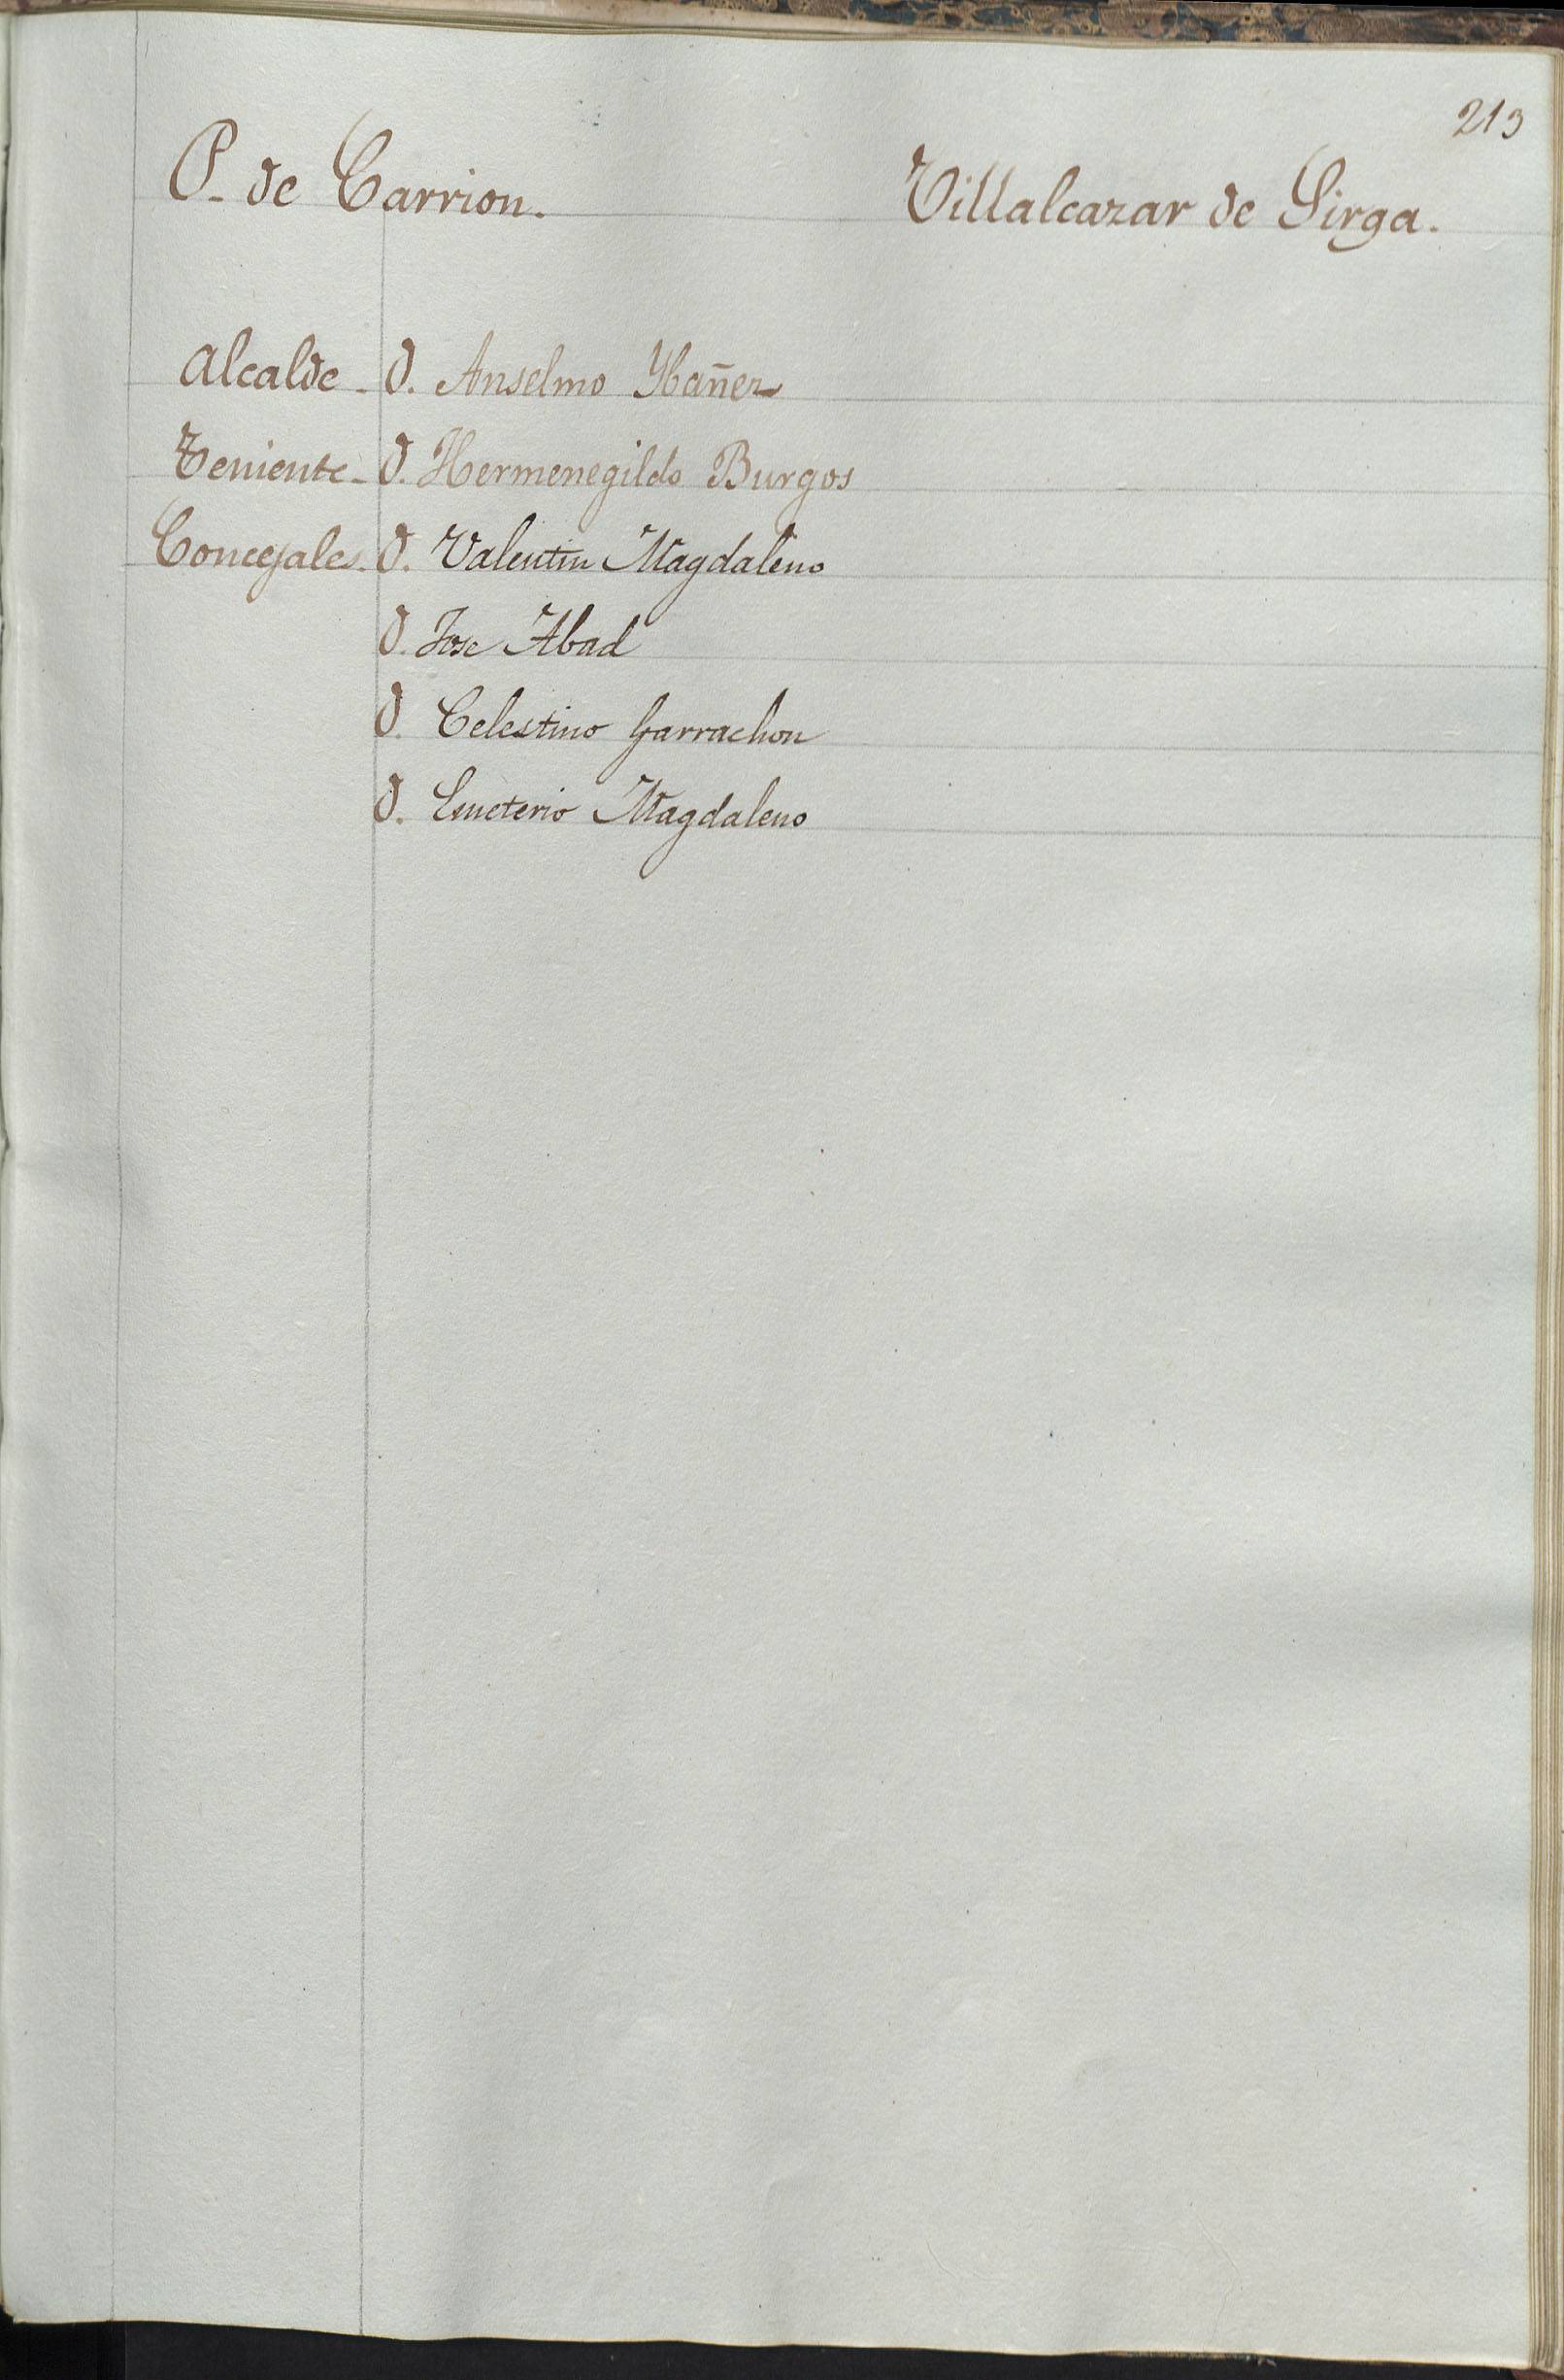 213
P. de Carrion. Villalcazar de Sirga.
Alcalde - D. Anselmo Ybañez
Teniente - D. Hermenegildo Burgos
Concejales. D. Valentin Magdaleno
D. Jose Abad
D. Celestino Garrachon
D. Emeterio Magdaleno